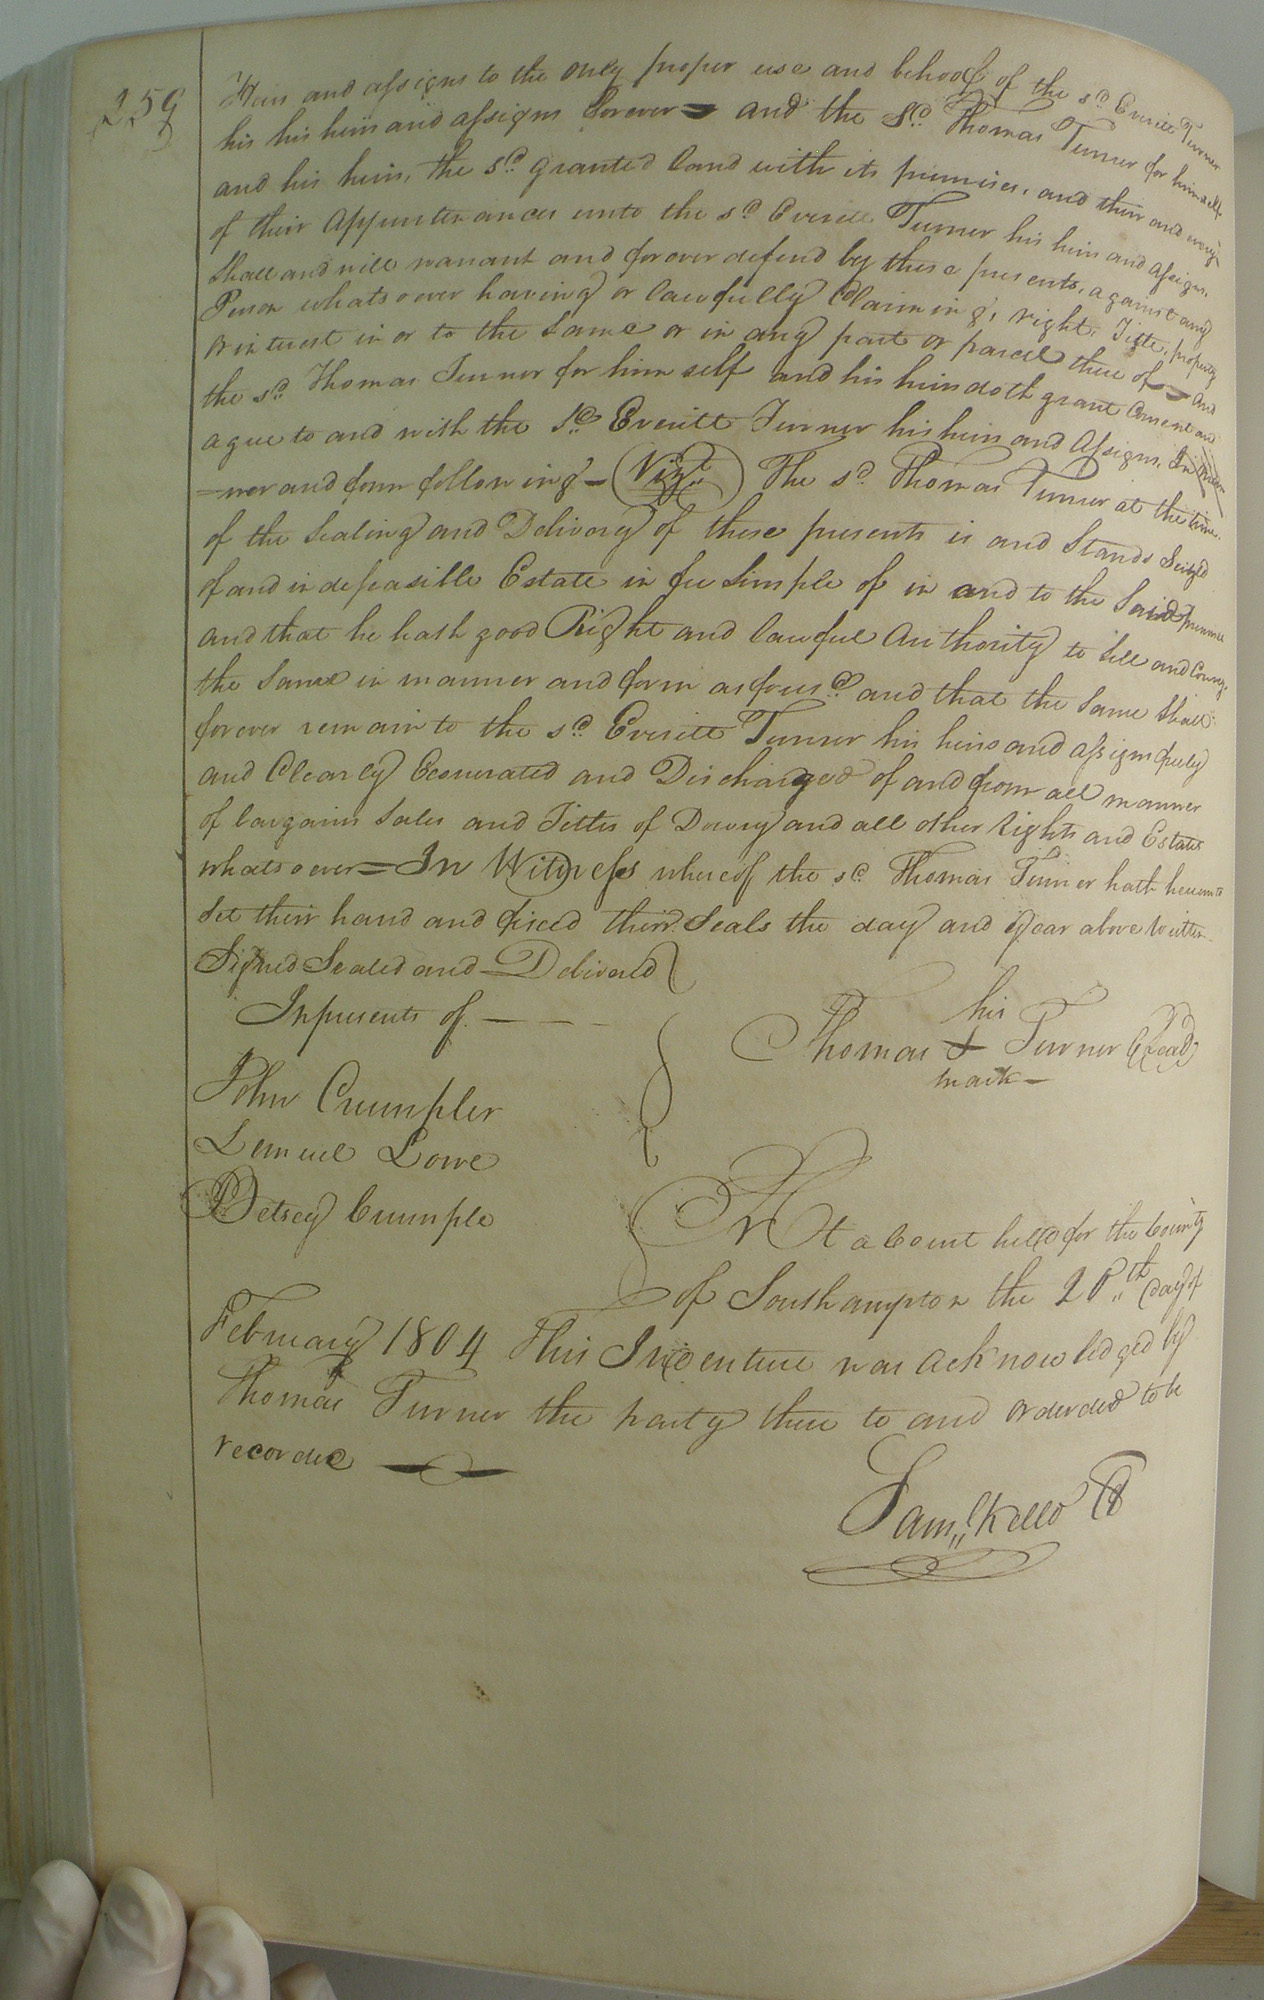 259
Heirs and assigns to the only proper use and behoof of the sd Everitt Turner
his his heirs and assigns forever = and the sd Thomas Turner for himself
and his heirs, the sd granted land with its premises, and their and every
of their Appurtenances unto the sd Everitt Turner his heirs and assigns.
Shall and will warrant and forever defend by these presents, against any
Person whatsoever having or lawfully Claiming, right, Title, property
or interest in or to the same or in any part or parcel there of = and
the sd Thomas Turner for him self and his heirs doth grant Covenant and
agree to and with the sd Everitt Turner his heirs and Assigns, In Man
=ner and form following - (Vizt.) The sd Thomas Turner at the time
of the Sealing and Delivery of these presents is and Stands Seized
of and indefeasible Estate in fee Simple of in and to the Said premises
and that he hath good Right and lawful Authority to sell and Convey
the Same in manner and form aforesd and that the Same Shall
forever remain to the sd Everitt Turner his heirs and assigns freely
and Clearly Exonerated and Discharged of and from all manner
of bargains Sales and Titles of Dowry and all other Rights and Estates
whatsoever = In Witness whereof the sd Thomas Turner hath hereunto
Set their hand and fixed their Seals the day and year above Written
Signed Sealed and Delivered
In presents of - - -
his
Thomas + Turner (Seal)
mark -
John Crumpler
Lemuel Lowe
Betsey Crumple
At a Court held for the County
of Southampton the 20th day of
February 1804 This Indenture was acknowledged by
Thomas Turner the party there to and orderded to be
recorded
Saml Kello